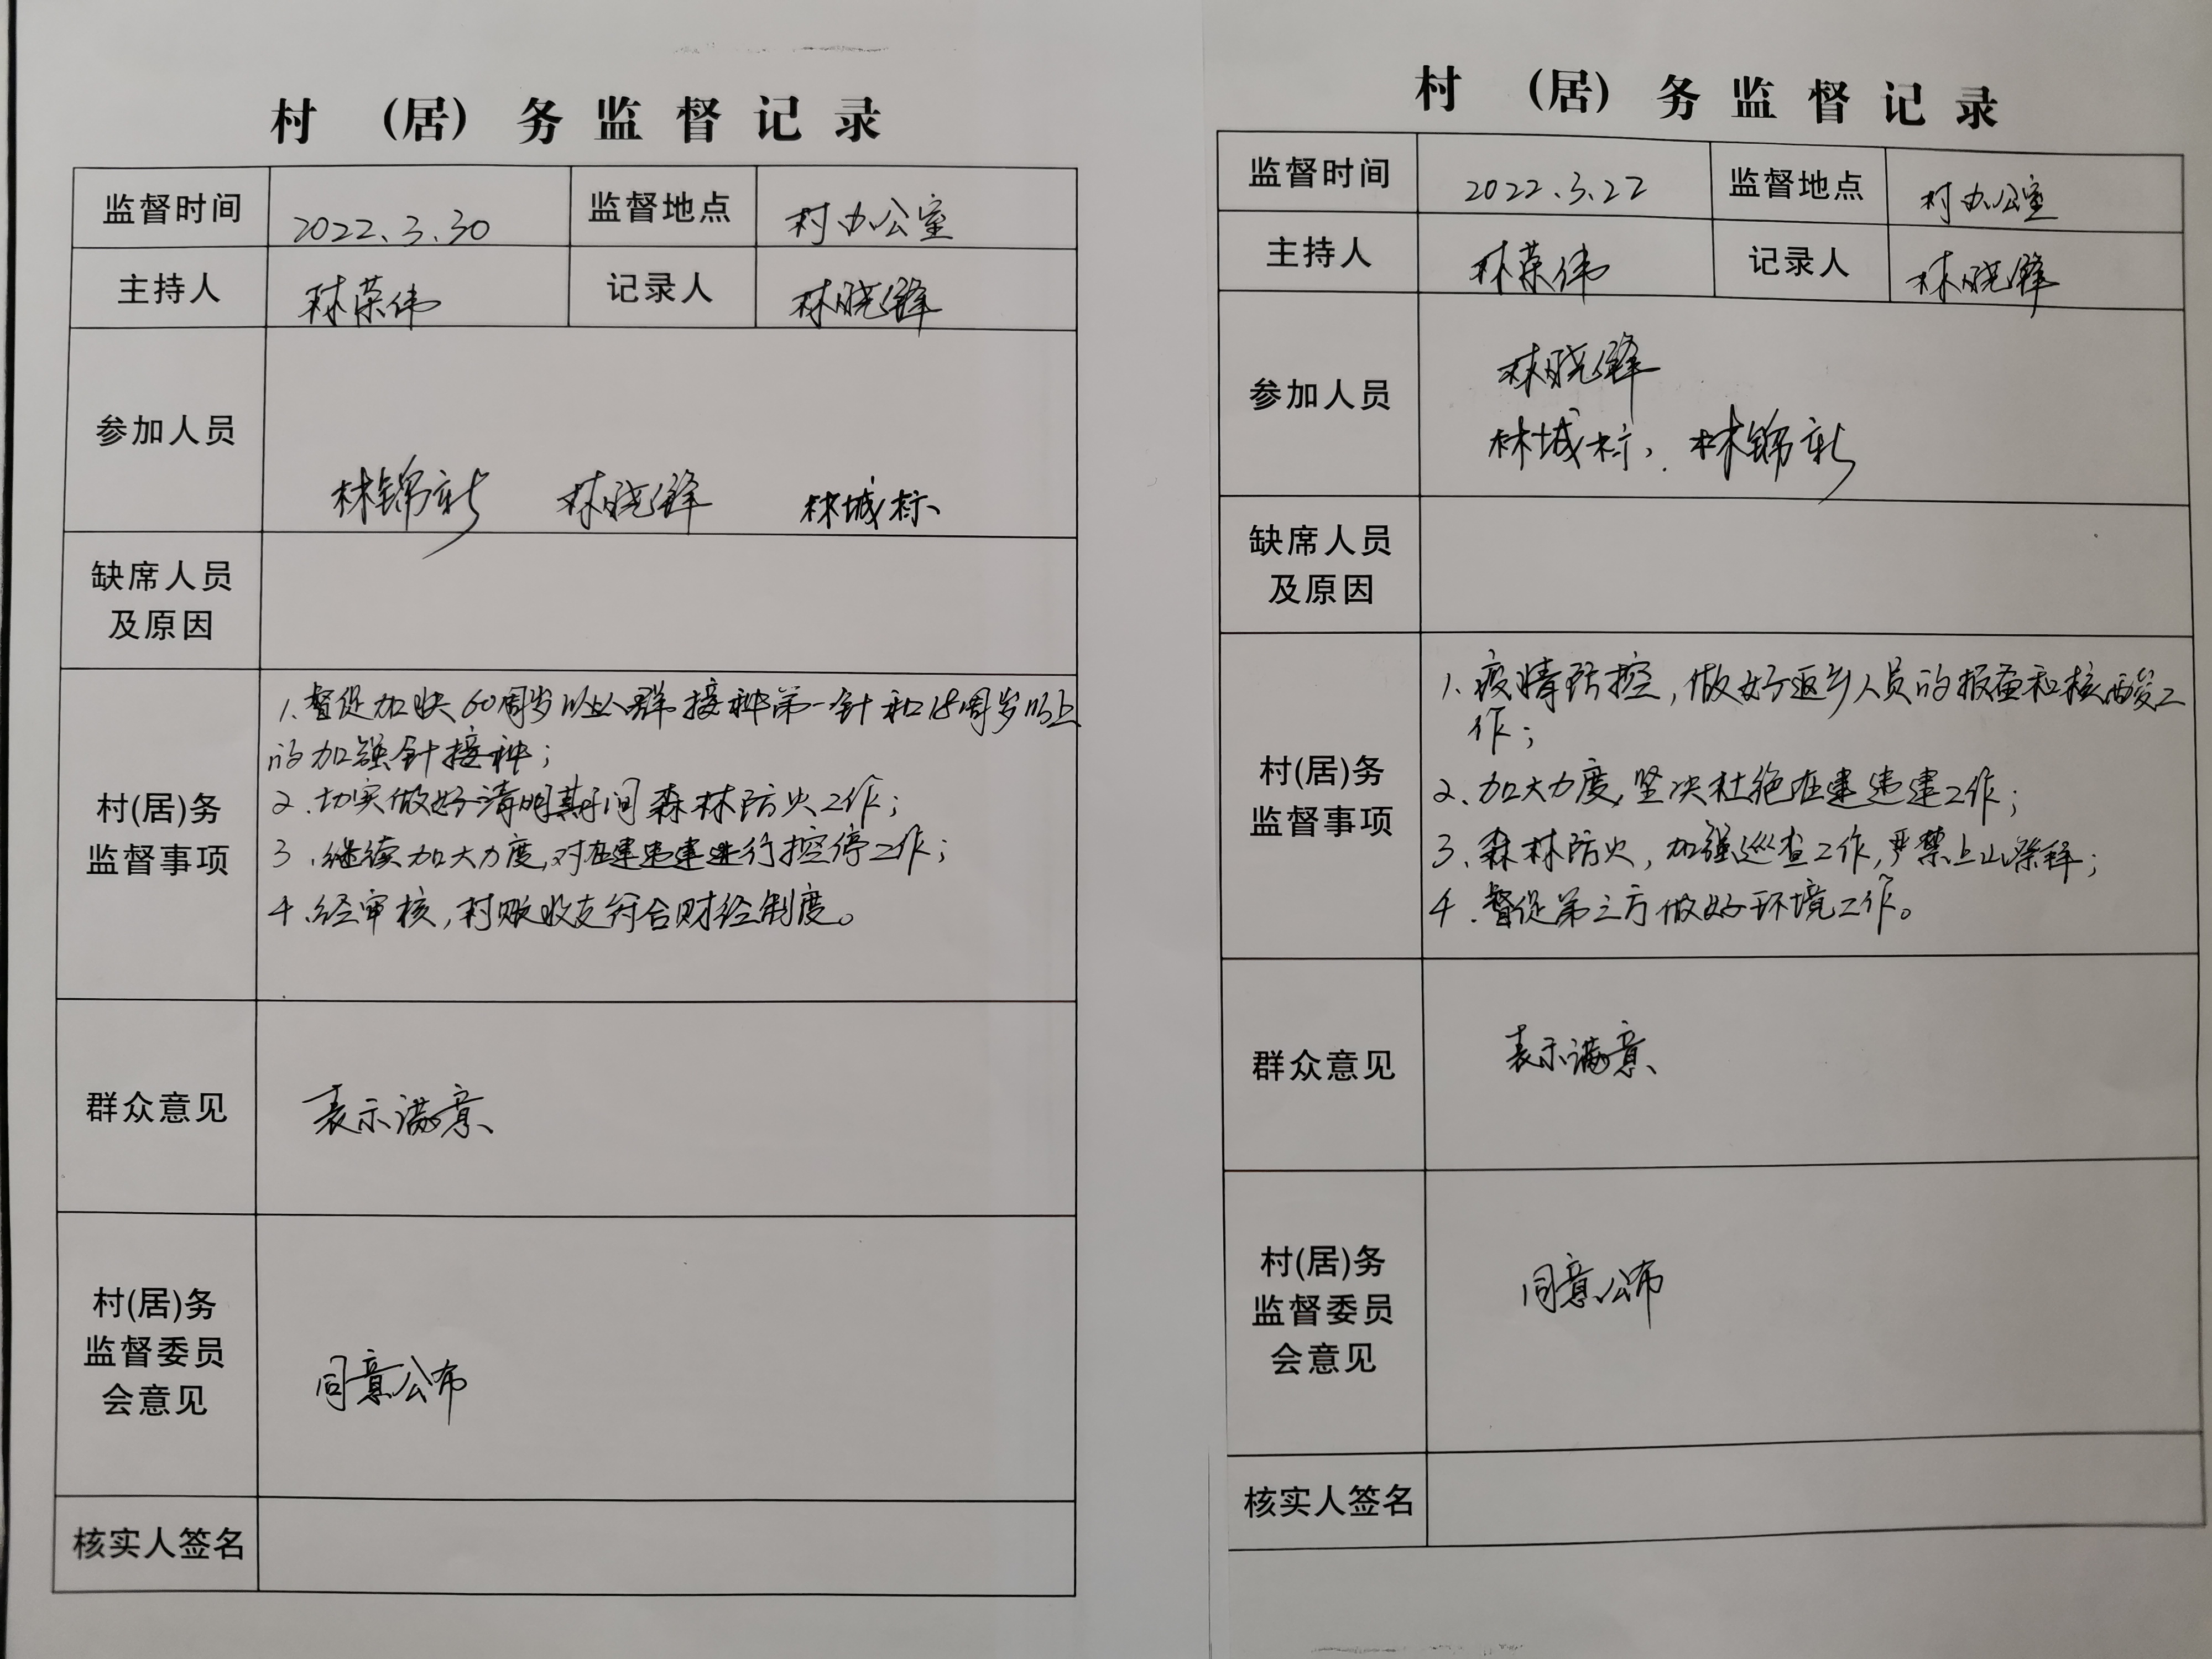 村 （居）务监督记录
监督时间 2022.3.30 监督地点 村办公室
主持人 林荣伟 记录人 林晓锋
参加人员
林锦新 林晓锋 林城标
缺席人员
及原因
1.督促加快60周岁以上人群接种第一针和18周岁以上
的加强针接种；
2.切实做好清明期间森林防火工作；
村(居)务
监督事项
3.继续加大力度,对在建违建进行控停工作；
4.经审核,村账收支符合财经制度。
群众意见 表示满意
村(居)务
监督委员
会意见
同意公布
核实人签名
村 （居）务监督记录
监督时间 2022.3.22 监督地点 村办公室
主持人 林荣伟 记录人 林晓锋
参加人员
林晓锋
林城标、林锦新
缺席人员
及原因
1.疫情防控,做好返乡人员的报备和核酸工
作；
村(居)务
监督事项
2、加大力度,坚决杜绝在建违建工作；
3、森林防火,加强巡查工作,严禁上山祭拜；
4.督促第三方做好环境工作。
群众意见 表示满意
村(居)务
监督委员
会意见
同意公布
核实人签名